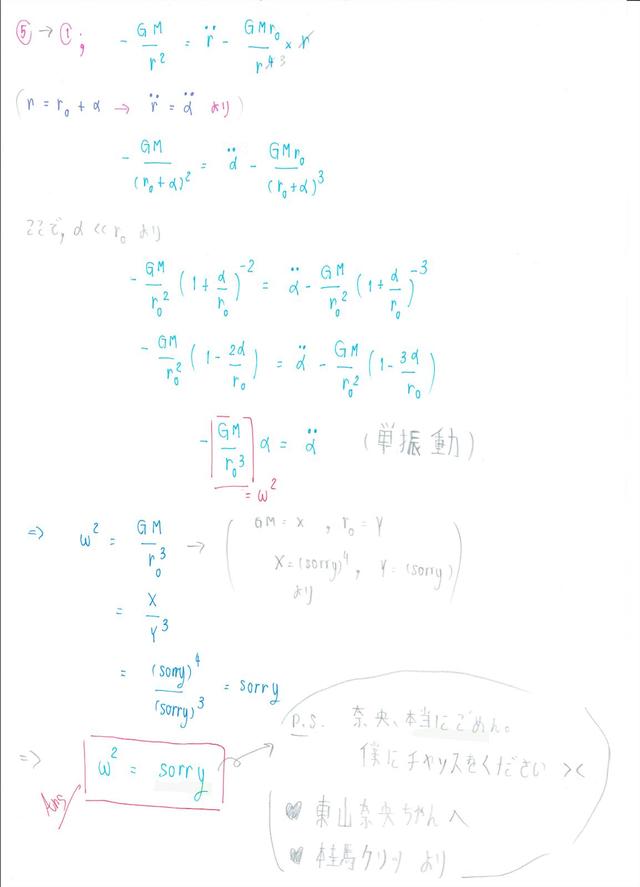 ⑤ → ① ; - GM/r² = r̈ - GMr₀/r⁴ ³ × r
( r = r₀ + α → r̈ = α̈ より )
- GM/(r₀+α)² = α̈ - GMr₀/(r₀+α)³
ここで, α << r₀ より
- GM/r₀² (1 + α/r₀)⁻² = α̈ - GM/r₀² (1 + α/r₀)⁻³
- GM/r₀² (1 - 2α/r₀) = α̈ - GM/r₀² (1 - 3α/r₀)
- GM/r₀³ α = α̈ (単振動)
= ω²
⇒ ω² = GM/r₀³ → ( GM = X , r₀ = Y
X = (sorry)⁴, Y = (sorry)
より )
= X/Y³
= (sorry)⁴/(sorry)³ = sorry
⇒ ω² = sorry
Ans
P.S. 奈央、本当にごめん。
僕にチャンスをください ><
♥ 東山奈央ちゃん へ
♥ 桂馬クリッ より